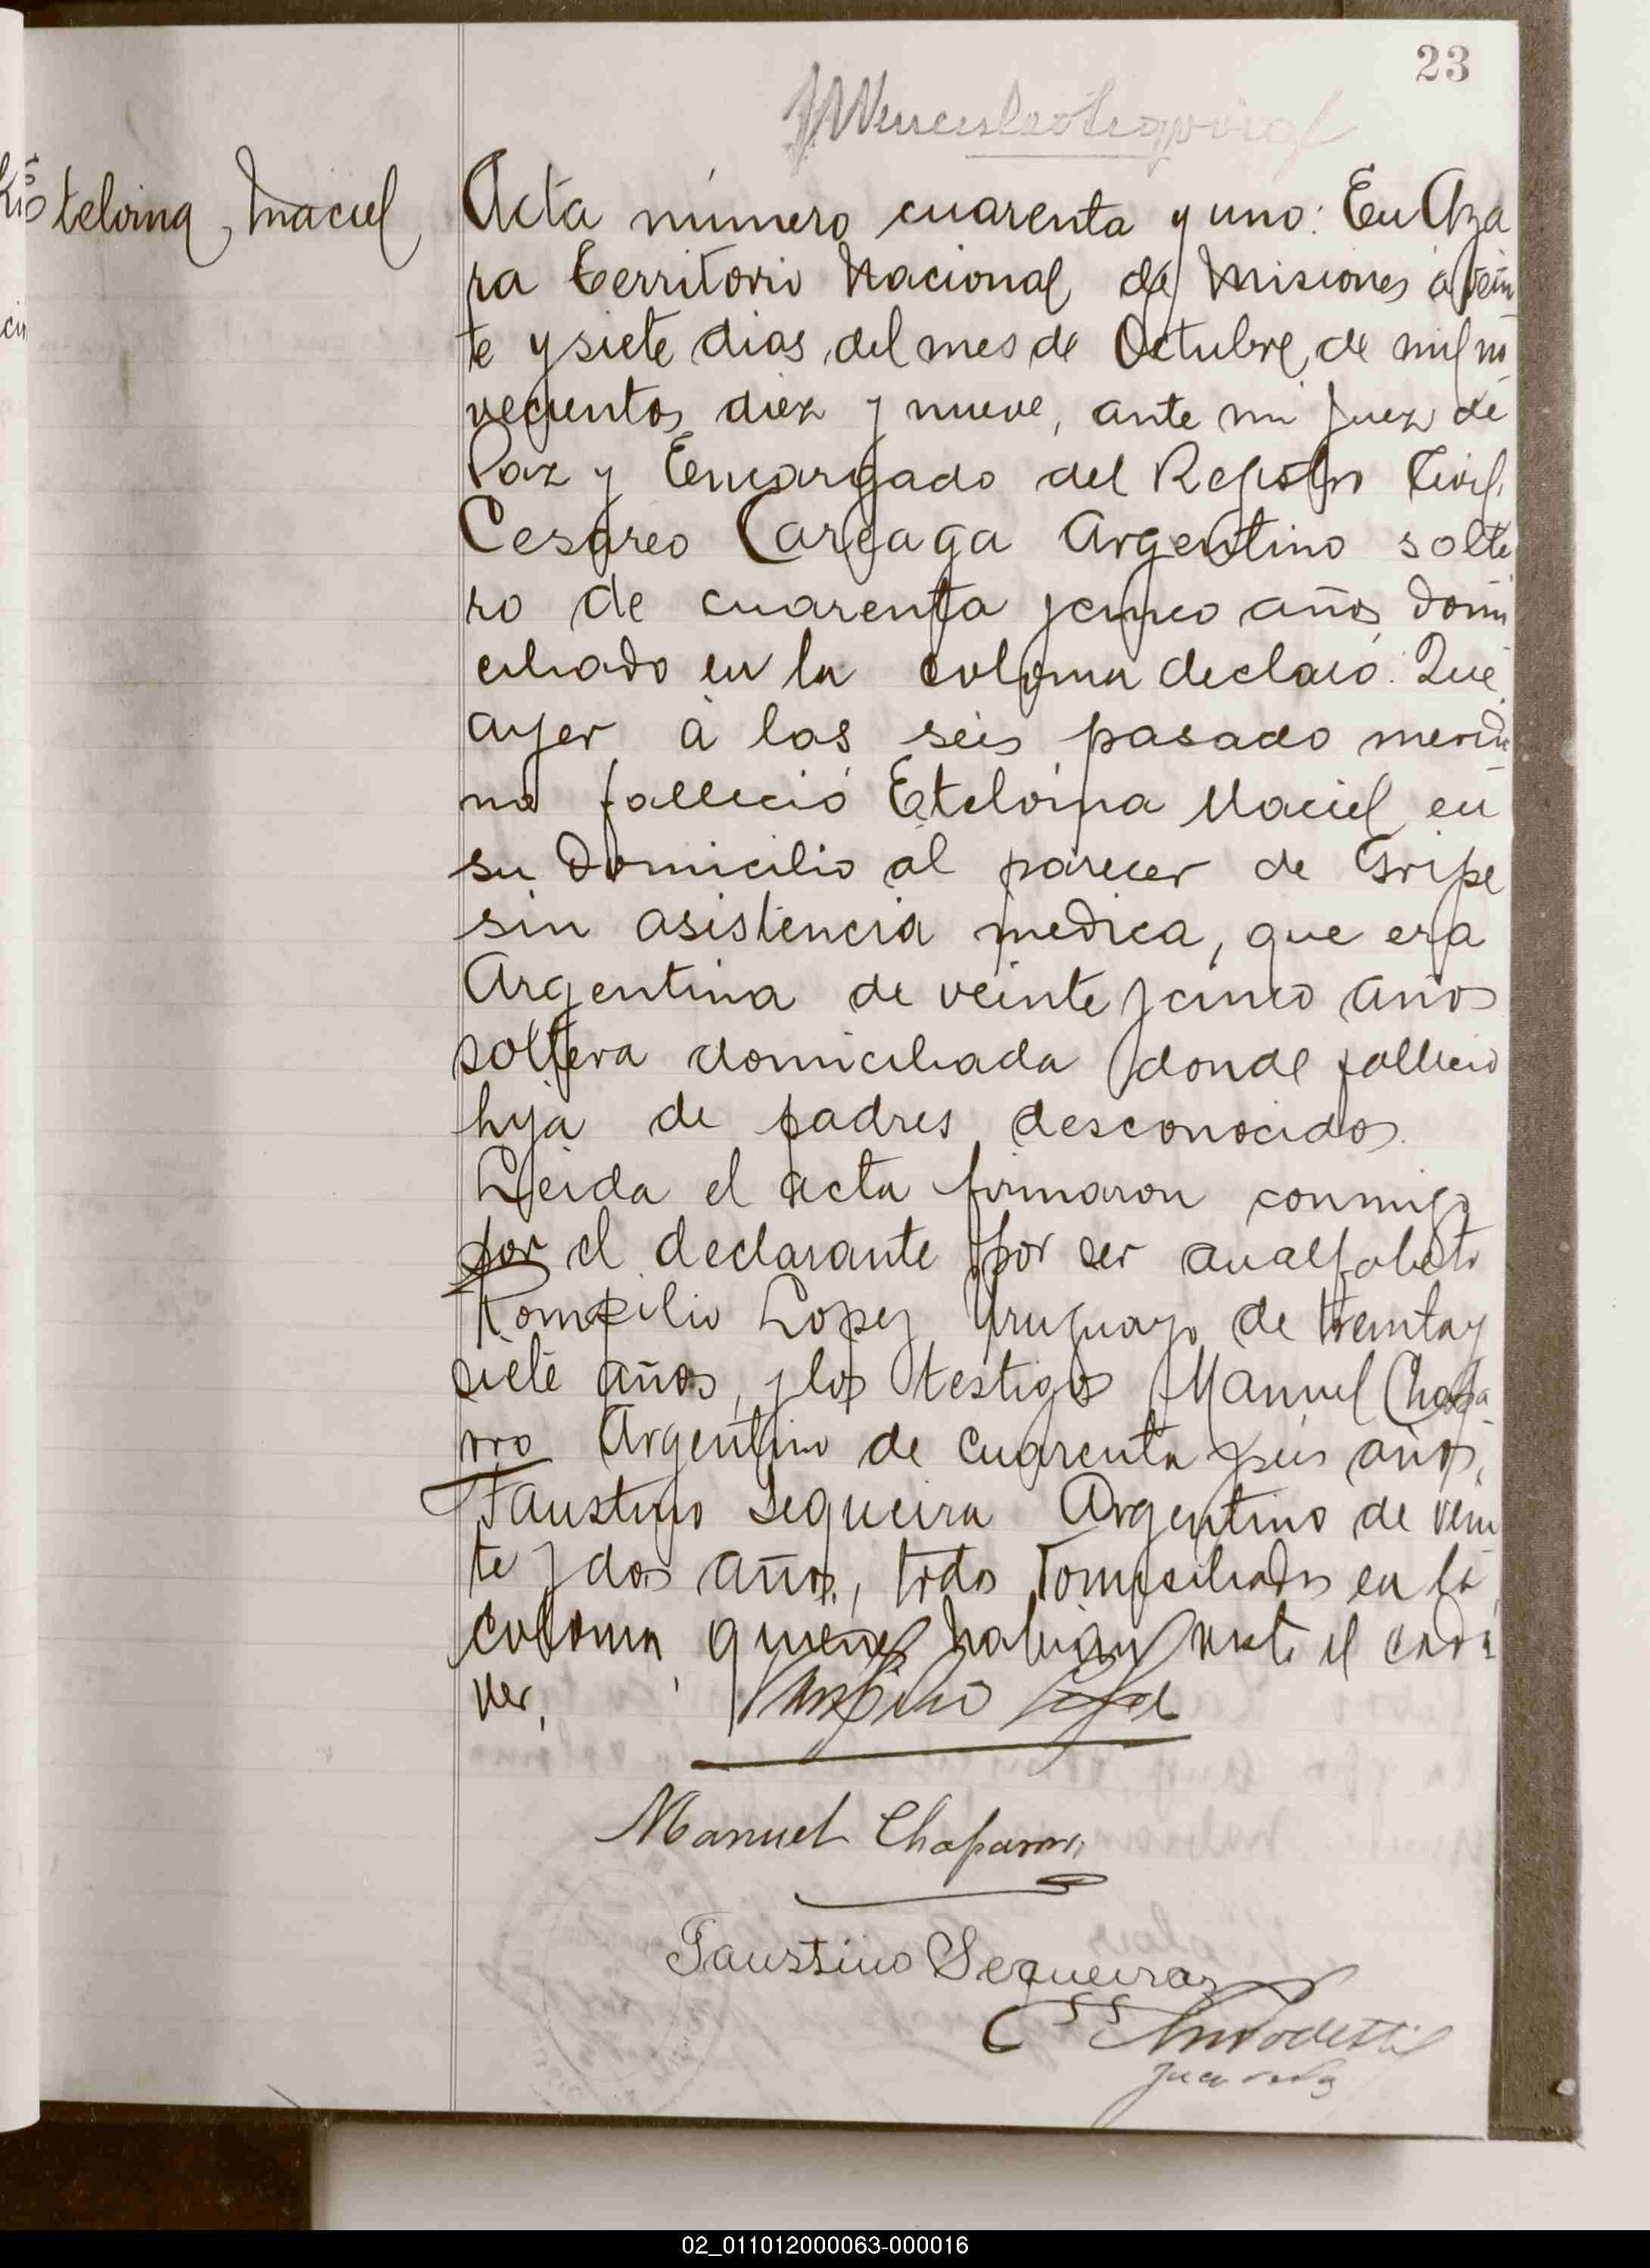 23
Etelvina Maciel
Acta número cuarenta y uno: En Aza
ra Territorio Nacional de Misiones á vein
te y siete dias del mes de Octubre de mil no
vecientos diez y nueve, ante mi Juez de
Paz y Encargado del Rejistro Civil
Cesareo Careaga Argentino solte
ro de cuarenta y cinco años domi
ciliado en la colonia declaró: Que
ayer á las seis pasado meridia
no falleció Etelvina Maciel en
su domicilio al parecer de Gripe
sin asistencia medica, que era
Argentina de veinte y cinco años
soltera domiciliada donde falleció
hija de padres desconocidos.
Leida el acta firmaron conmigo
por el declarante por ser analfabeto
Pompilio Lopez Uruguayo de treinta y
siete años, y los testigos Manuel Chapa
rro Argentino de cuarenta y seis años,
Faustino Sequeira Argentino de vein
te y dos años, todos domiciliados en la
colonia, quienes habian visto el cadá
ver.
Manuel Chaparro
Faustino Sequeira
Juez de Paz
02_011012000063-000016